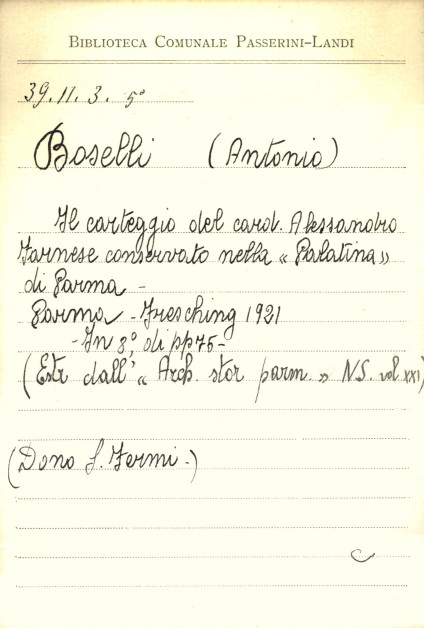 BIBLIOTECA COMUNALE PASSERINI-LANDI
39.11.3. 5°
Boselli (Antonio)
Il carteggio del card. Alessandro
Farnese conservato nella « Palatina »
di Parma -
Parma - Fresching 1921
- In 8°, di pp 75 -
(Estr dall' « Arch. stor parm. » N.S. vol XXI)
(Dono S. Fermi -)
C